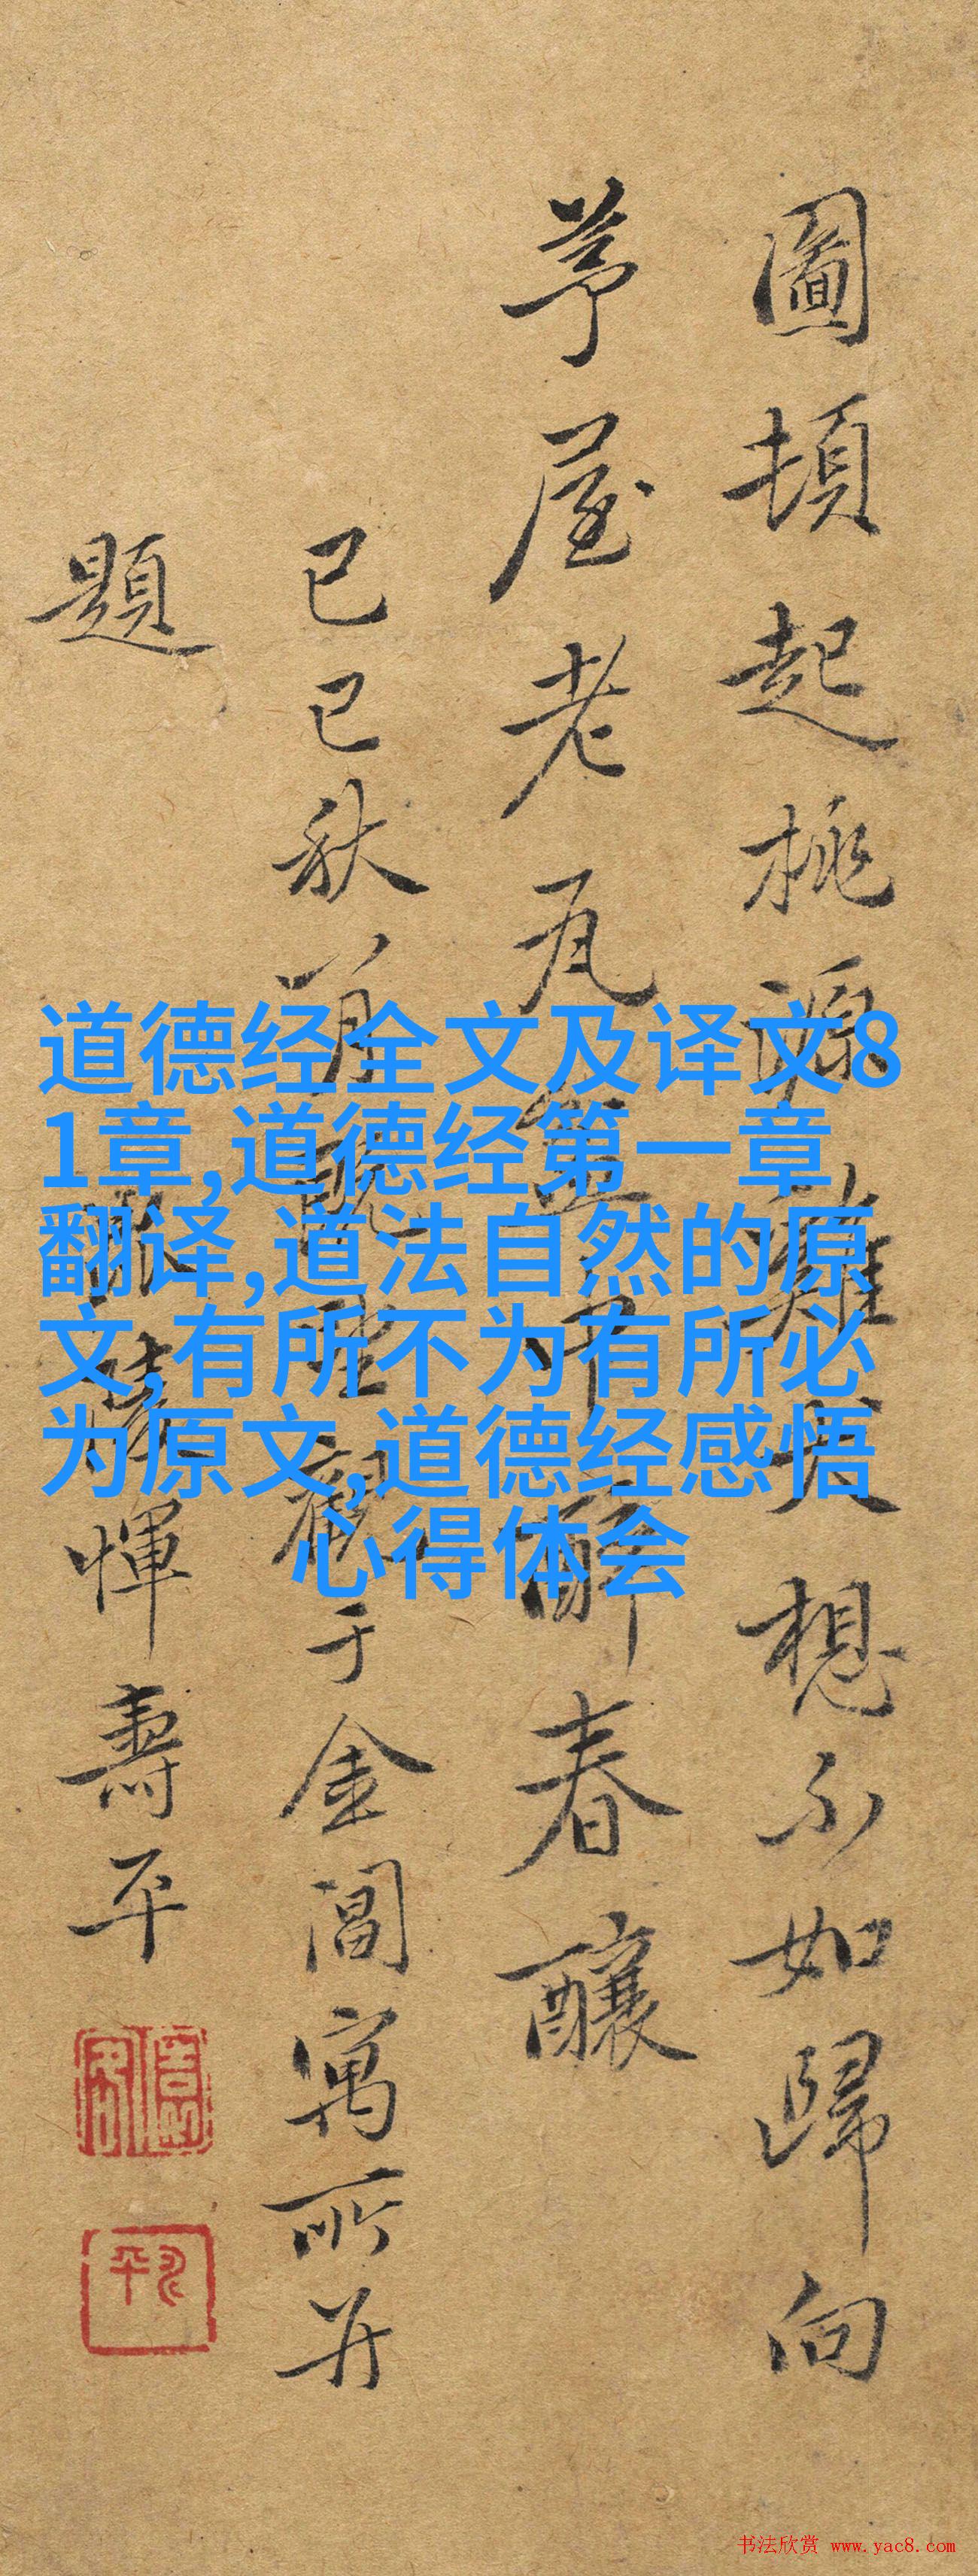 圖頓起桃源雞犬想不如歸向
茅屋老瓦盆中醉春釀
己巳秋八月既望觀于金閶寓所并
題
惲壽平
道德经全文及译文8
1章,道德经第一章
翻译,道法自然的原
文,有所不为有所必
为原文,道德经感悟
心得体会
书法欣赏 www.yac8.com